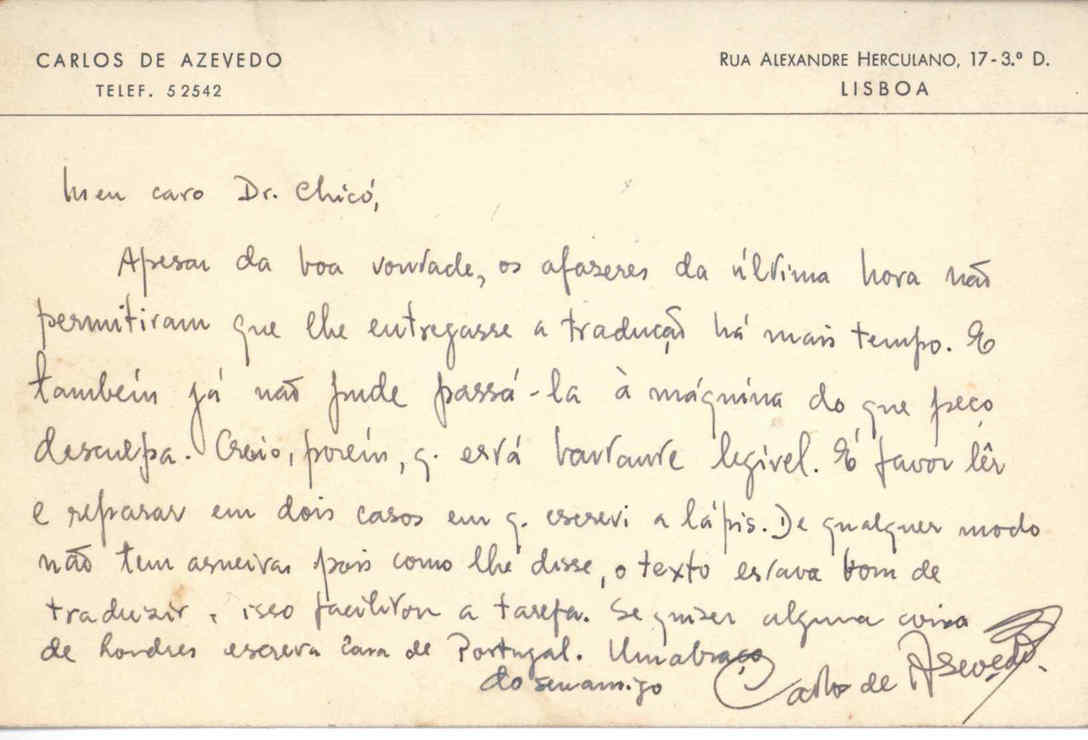 CARLOS DE AZEVEDO
TELEF. 52542
RUA ALEXANDRE HERCULANO, 17-3.º D.
LISBOA
Meu caro Dr. Chicó,
Apesar da boa vontade, os afazeres da última hora não
permitiram que lhe entregasse a tradução há mais tempo. E
também já não pude passá-la à máquina do que peço
desculpa. Creio, porém, q. está bastante legivel. É favor lêr
e reparar em dois casos em q. escrevi a lápis. De qualquer modo
não tem asneiras pois como lhe disse, o texto estava bom de
traduzir, isso facilitou a tarefa. Se quizer alguma coisa
de Londres escreva Casa de Portugal. Um abraço
do seu amigo
Carlos de Azevedo.